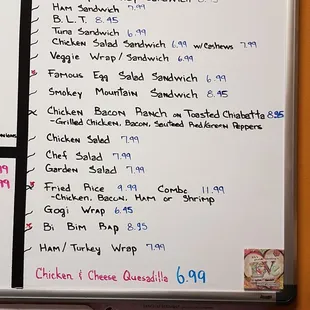 Ham Sandwich 7.99
B.L.T. 8.45
Tuna Sandwich 6.99
Chicken Salad Sandwich 6.99 w/Cashews 7.99
Veggie Wrap/Sandwich 6.99
Famous Egg Salad Sandwich 6.99
Smokey Mountain Sandwich 8.45
Chicken Bacon Ranch on Toasted Chiabatta 8.95
-Grilled Chicken, Bacon, Sauteed Red/Green Peppers
Chicken Salad 7.99
Chef Salad 7.99
Garden Salad 7.99
Fried Rice 9.99 Combo 11.99
-Chicken, Bacon, Ham or Shrimp
Gogi Wrap 6.45
Bi Bim Bap 8.95
Ham/Turkey Wrap 7.99
Chicken & Cheese Quesadilla 6.99